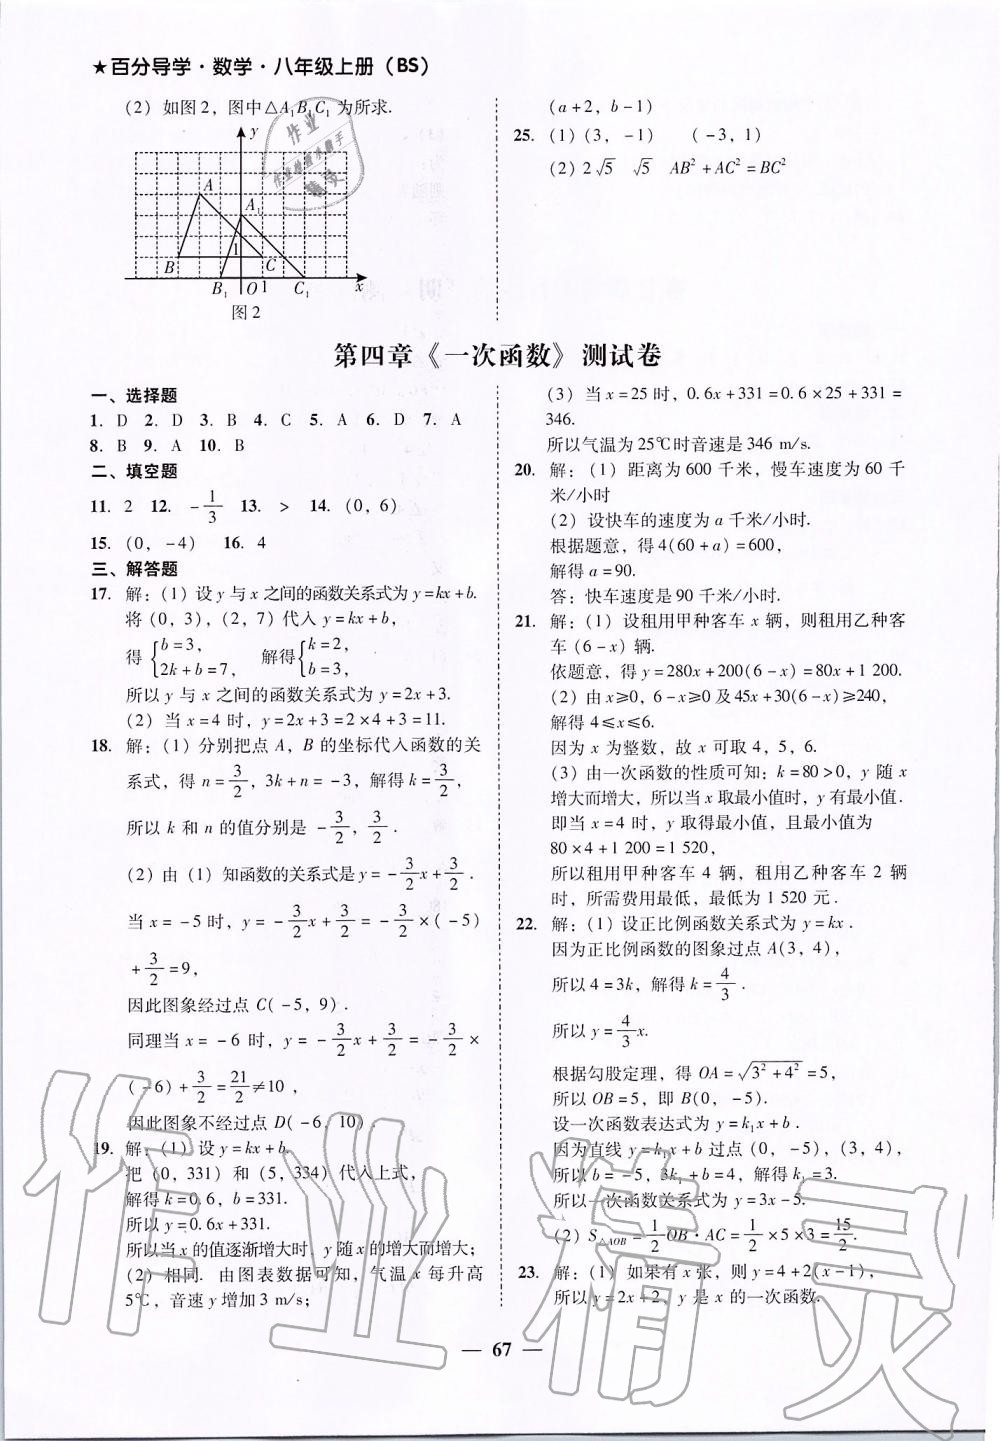 ★百分导学·数学·八年级上册（BS）
（2）如图2，图中△A₁B₁C₁为所求.
y
A
A₁
1
B
C
B₁ O 1 C₁ x
图2
（a+2，b-1）
25. （1）（3，-1）　（-3，1）
（2）2√5　√5　AB²+AC²=BC²
第四章《一次函数》测试卷
一、选择题
1. D 2. D 3. B 4. C 5. A 6. D 7. A
8. B 9. A 10. B
二、填空题
11. 2 12. -1/3 13. > 14.（0，6）
15.（0，-4） 16. 4
三、解答题
17. 解：（1）设y与x之间的函数关系式为y=kx+b.
将（0，3），（2，7）代入y=kx+b，
得{b=3，2k+b=7，　解得{k=2，b=3，
所以y与x之间的函数关系式为y=2x+3.
（2）当x=4时，y=2x+3=2×4+3=11.
18. 解：（1）分别把点A，B的坐标代入函数的关
系式，得n=3/2，3k+n=-3，解得k=3/2，
所以k和n的值分别是-3/2，3/2.
（2）由（1）知函数的关系式是y=-3/2x+3/2.
当x=-5时，y=-3/2x+3/2=-3/2×（-5）
+3/2=9，
因此图象经过点C（-5，9）.
同理当x=-6时，y=-3/2x+3/2=-3/2×
（-6）+3/2=21/2≠10，
因此图象不经过点D（-6，10）.
19. 解：（1）设y=kx+b.
把（0，331）和（5，334）代入上式，
解得k=0.6，b=331.
所以y=0.6x+331.
所以当x的值逐渐增大时，y随x的增大而增大；
（2）相同. 由图表数据可知，气温x每升高
5℃，音速y增加3 m/s；
（3）当x=25时，0.6x+331=0.6×25+331=
346.
所以气温为25℃时音速是346 m/s.
20. 解：（1）距离为600千米，慢车速度为60千
米/小时
（2）设快车的速度为a千米/小时.
根据题意，得4（60+a）=600，
解得a=90.
答：快车速度是90千米/小时.
21. 解：（1）设租用甲种客车x辆，则租用乙种客
车（6-x）辆.
依题意，得y=280x+200（6-x）=80x+1 200.
（2）由x≥0，6-x≥0及45x+30（6-x）≥240，
解得4≤x≤6.
因为x为整数，故x可取4，5，6.
（3）由一次函数的性质可知：k=80>0，y随x
增大而增大，所以当x取最小值时，y有最小值.
即当x=4时，y取得最小值，且最小值为
80×4+1 200=1 520，
所以租用甲种客车4辆，租用乙种客车2辆
时，所需费用最低，最低为1 520元.
22. 解：（1）设正比例函数关系式为y=kx.
因为正比例函数的图象过点A（3，4），
所以4=3k，解得k=4/3.
所以y=4/3x.
根据勾股定理，得OA=√(3²+4²)=5，
所以OB=5，即B（0，-5）.
设一次函数表达式为y=k₁x+b.
因为直线y=k₁x+b过点（0，-5），（3，4），
所以b=-5，3k₁+b=4，解得k₁=3.
所以一次函数关系式为y=3x-5.
（2）S△AOB=1/2OB·AC=1/2×5×3=15/2.
23. 解：（1）如果有x张，则y=4+2（x-1），
所以y=2x+2，y是x的一次函数.
— 67 —
作业精灵